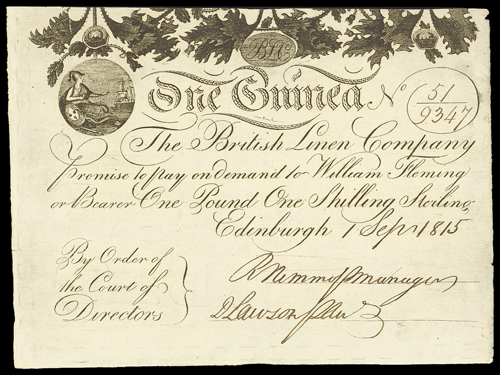 BLCo
One Guinea No 51
9347
The British Linen Company
Promise to pay on demand to William Fleming
or Bearer One Pound One Shilling Sterling
Edinburgh 1 Sepr 1815
By Order of
the Court of
Directors
R Nimmo p manager
D Lawson